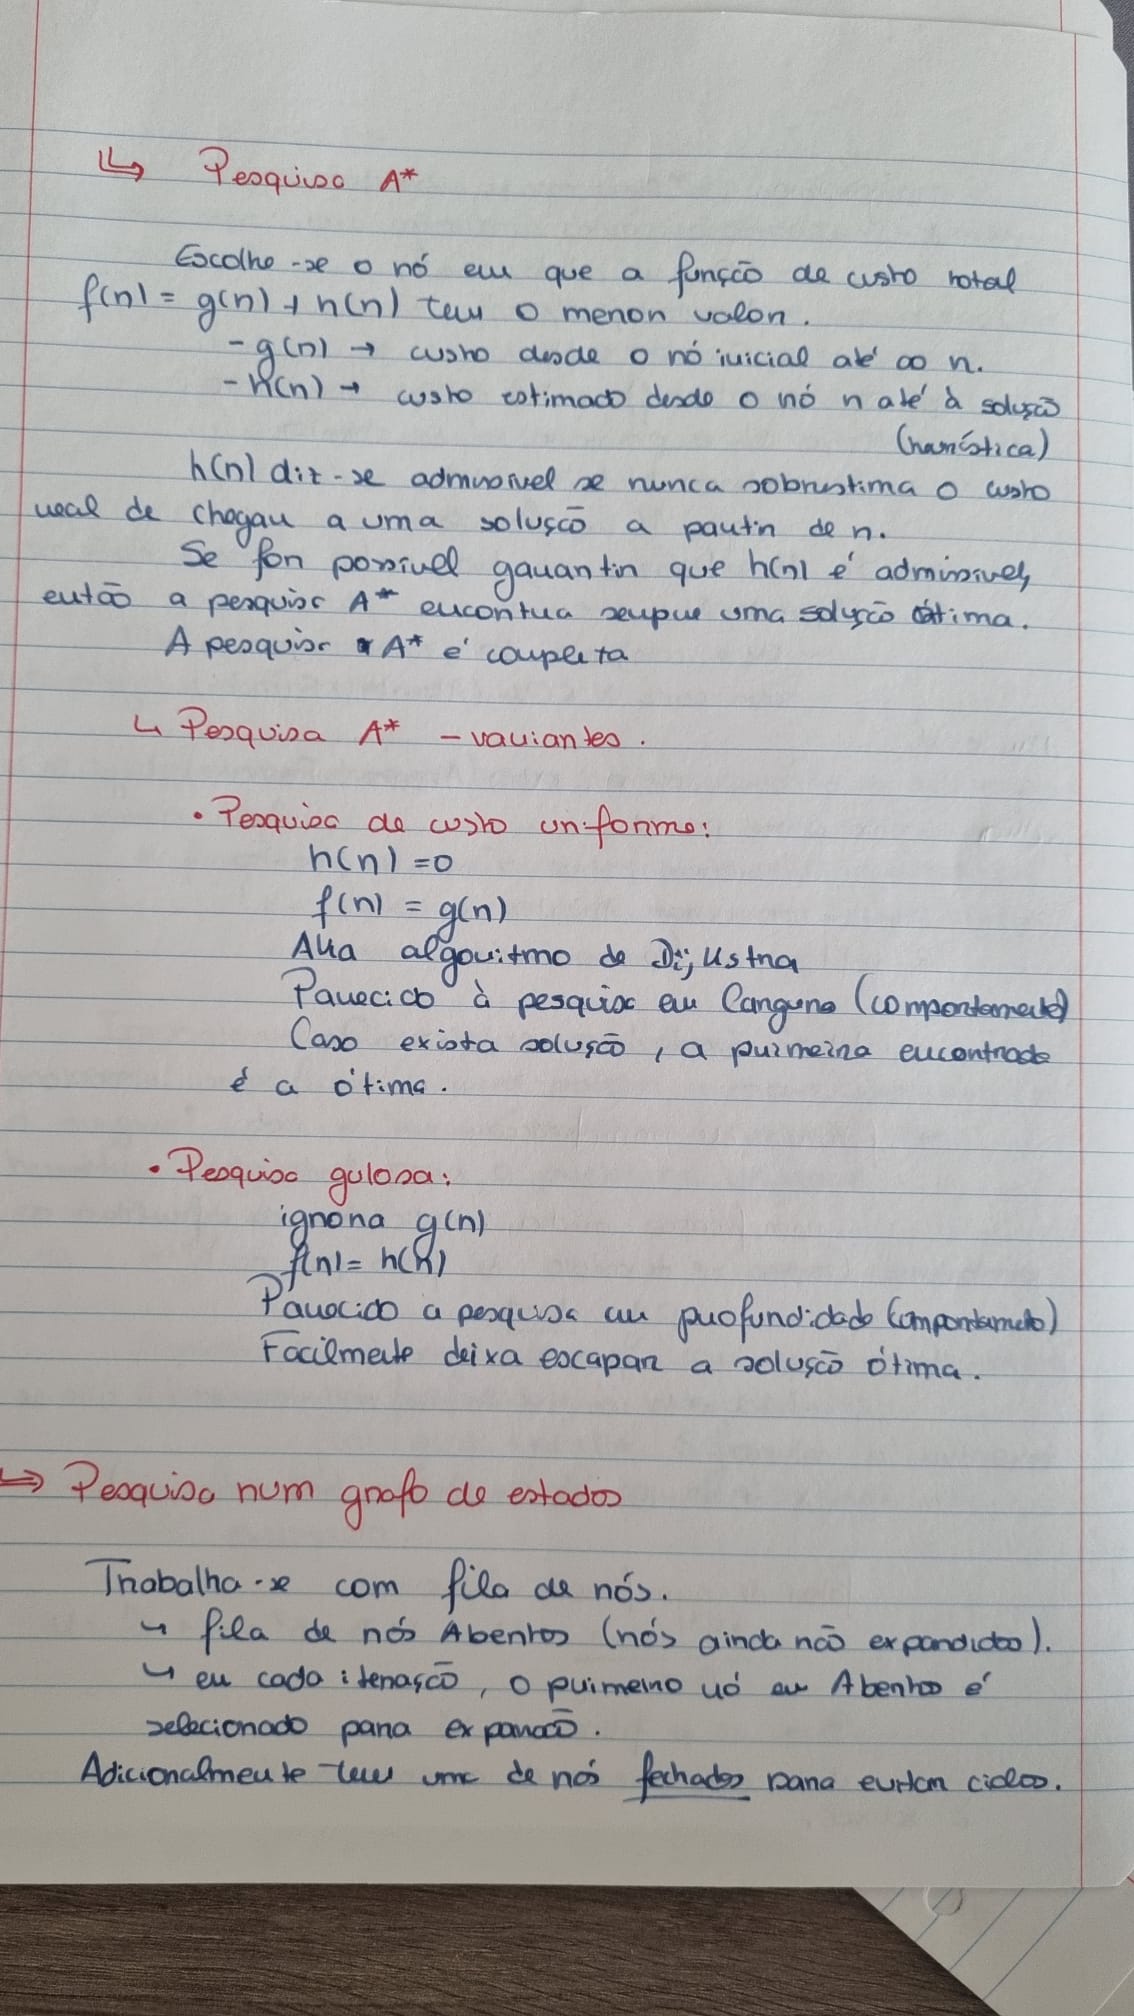 ↳ Pesquisa A*
Escolhe-se o nó em que a função de custo total
f(n) = g(n) + h(n) tem o menor valor.
- g(n) → custo desde o nó inicial até ao n.
- h(n) → custo estimado desde o nó n até à solução
(heurística)
h(n) diz-se admissível se nunca sobrestima o custo
real de chegar a uma solução a partir de n.
Se for possível garantir que h(n) é admissível,
então a pesquisa A* encontra sempre uma solução ótima.
A pesquisa A* é completa
↳ Pesquisa A* - variantes.
• Pesquisa de custo uniforme:
h(n) = 0
f(n) = g(n)
Aka algoritmo de Dijkstra
Parecido à pesquisa em largura (comportamento)
Caso exista solução, a primeira encontrada
é a ótima.
• Pesquisa gulosa:
ignora g(n)
f(n) = h(n)
Parecido a pesquisa em profundidade (comportamento)
Facilmente deixa escapar a solução ótima.
↳ Pesquisa num grafo de estados
Trabalha-se com fila de nós.
↳ fila de nós Abertos (nós ainda não expandidos).
↳ em cada iteração, o primeiro nó em Abertos é
selecionado para expansão.
Adicionalmente tem uma de nós fechados para evitar ciclos.